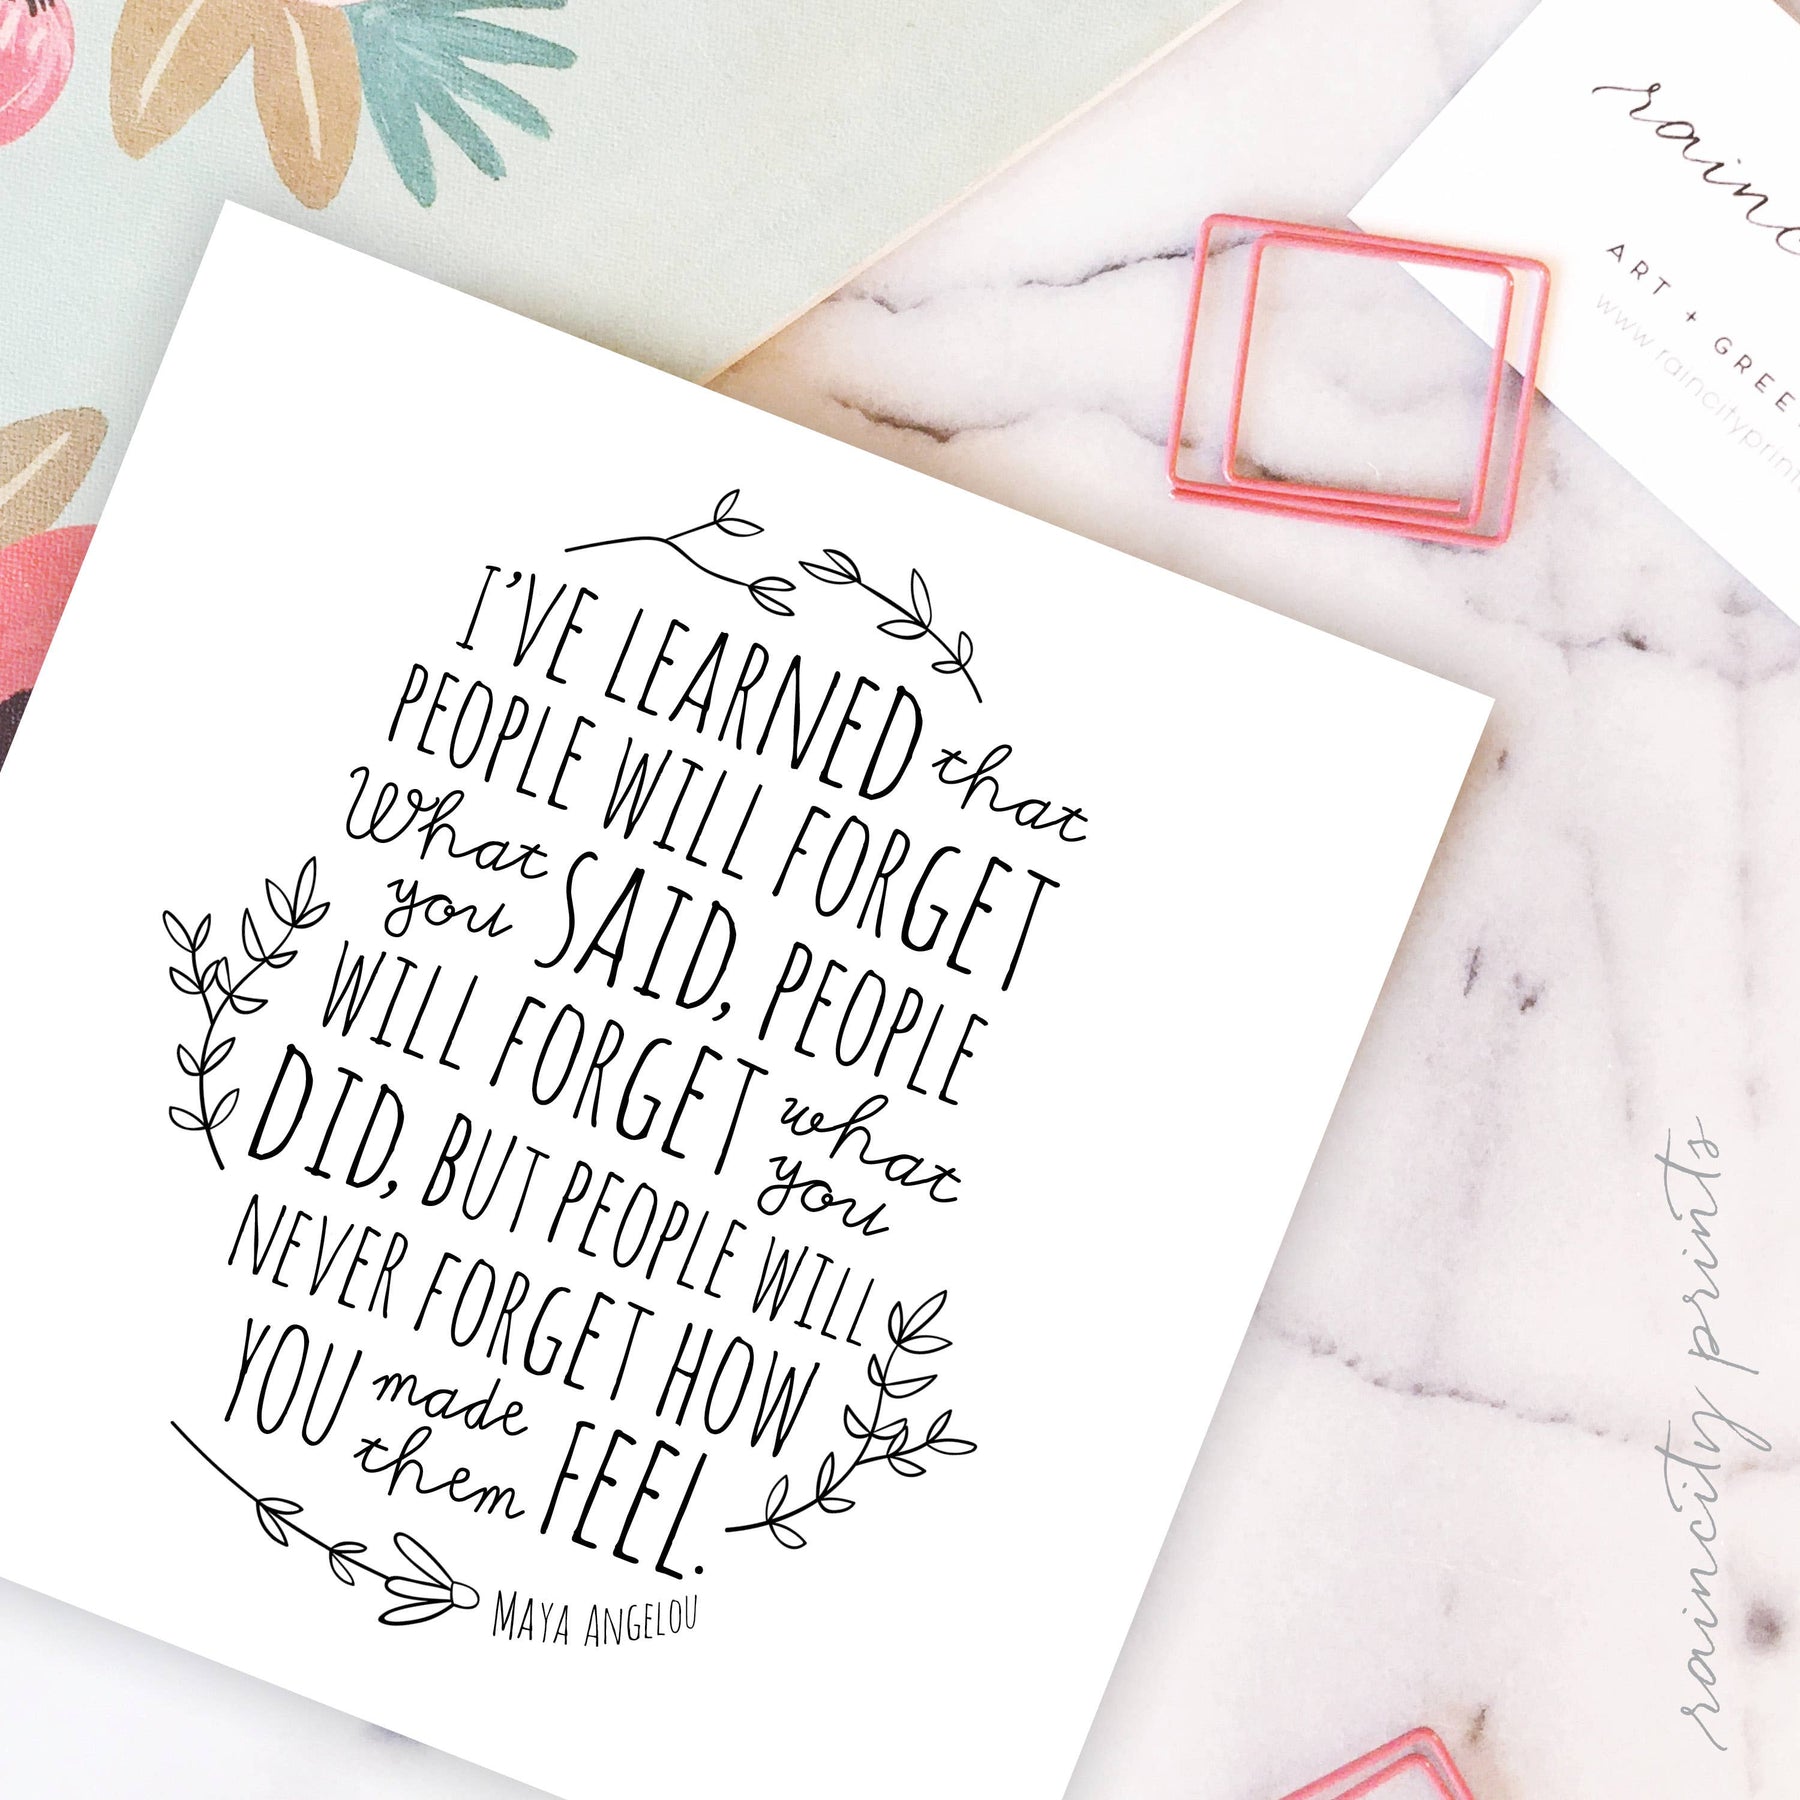 I'VE LEARNED that
PEOPLE WILL FORGET
What you SAID, PEOPLE
WILL FORGET what you
DID, BUT PEOPLE WILL
NEVER FORGET HOW
YOU made them FEEL.
MAYA ANGELOU
ART +
raincity prints